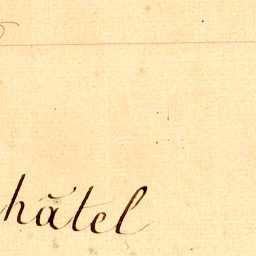 hâtel